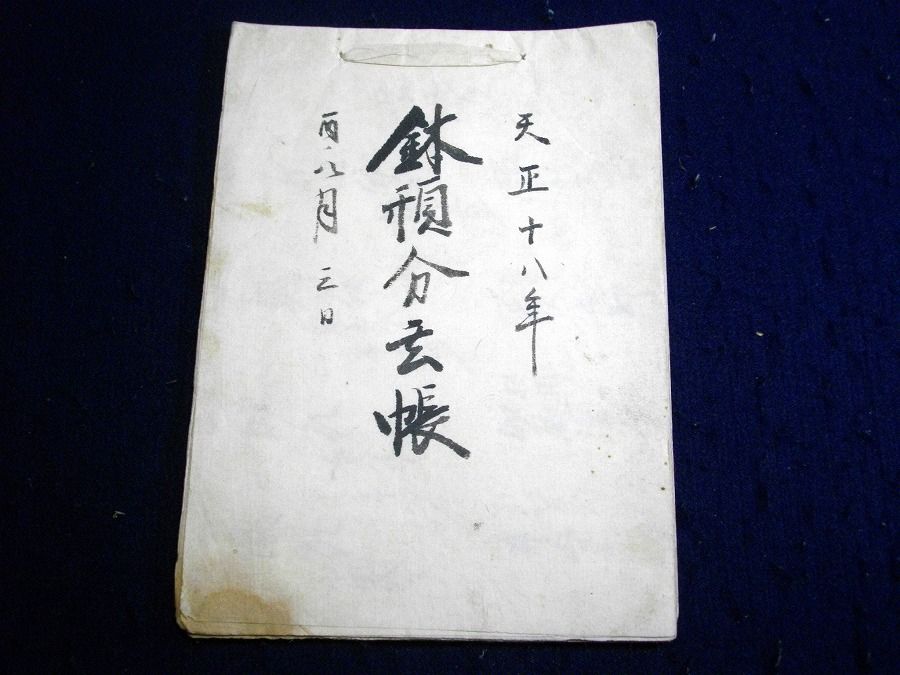 天正十八年
鉢分玄帳
酉八月三日